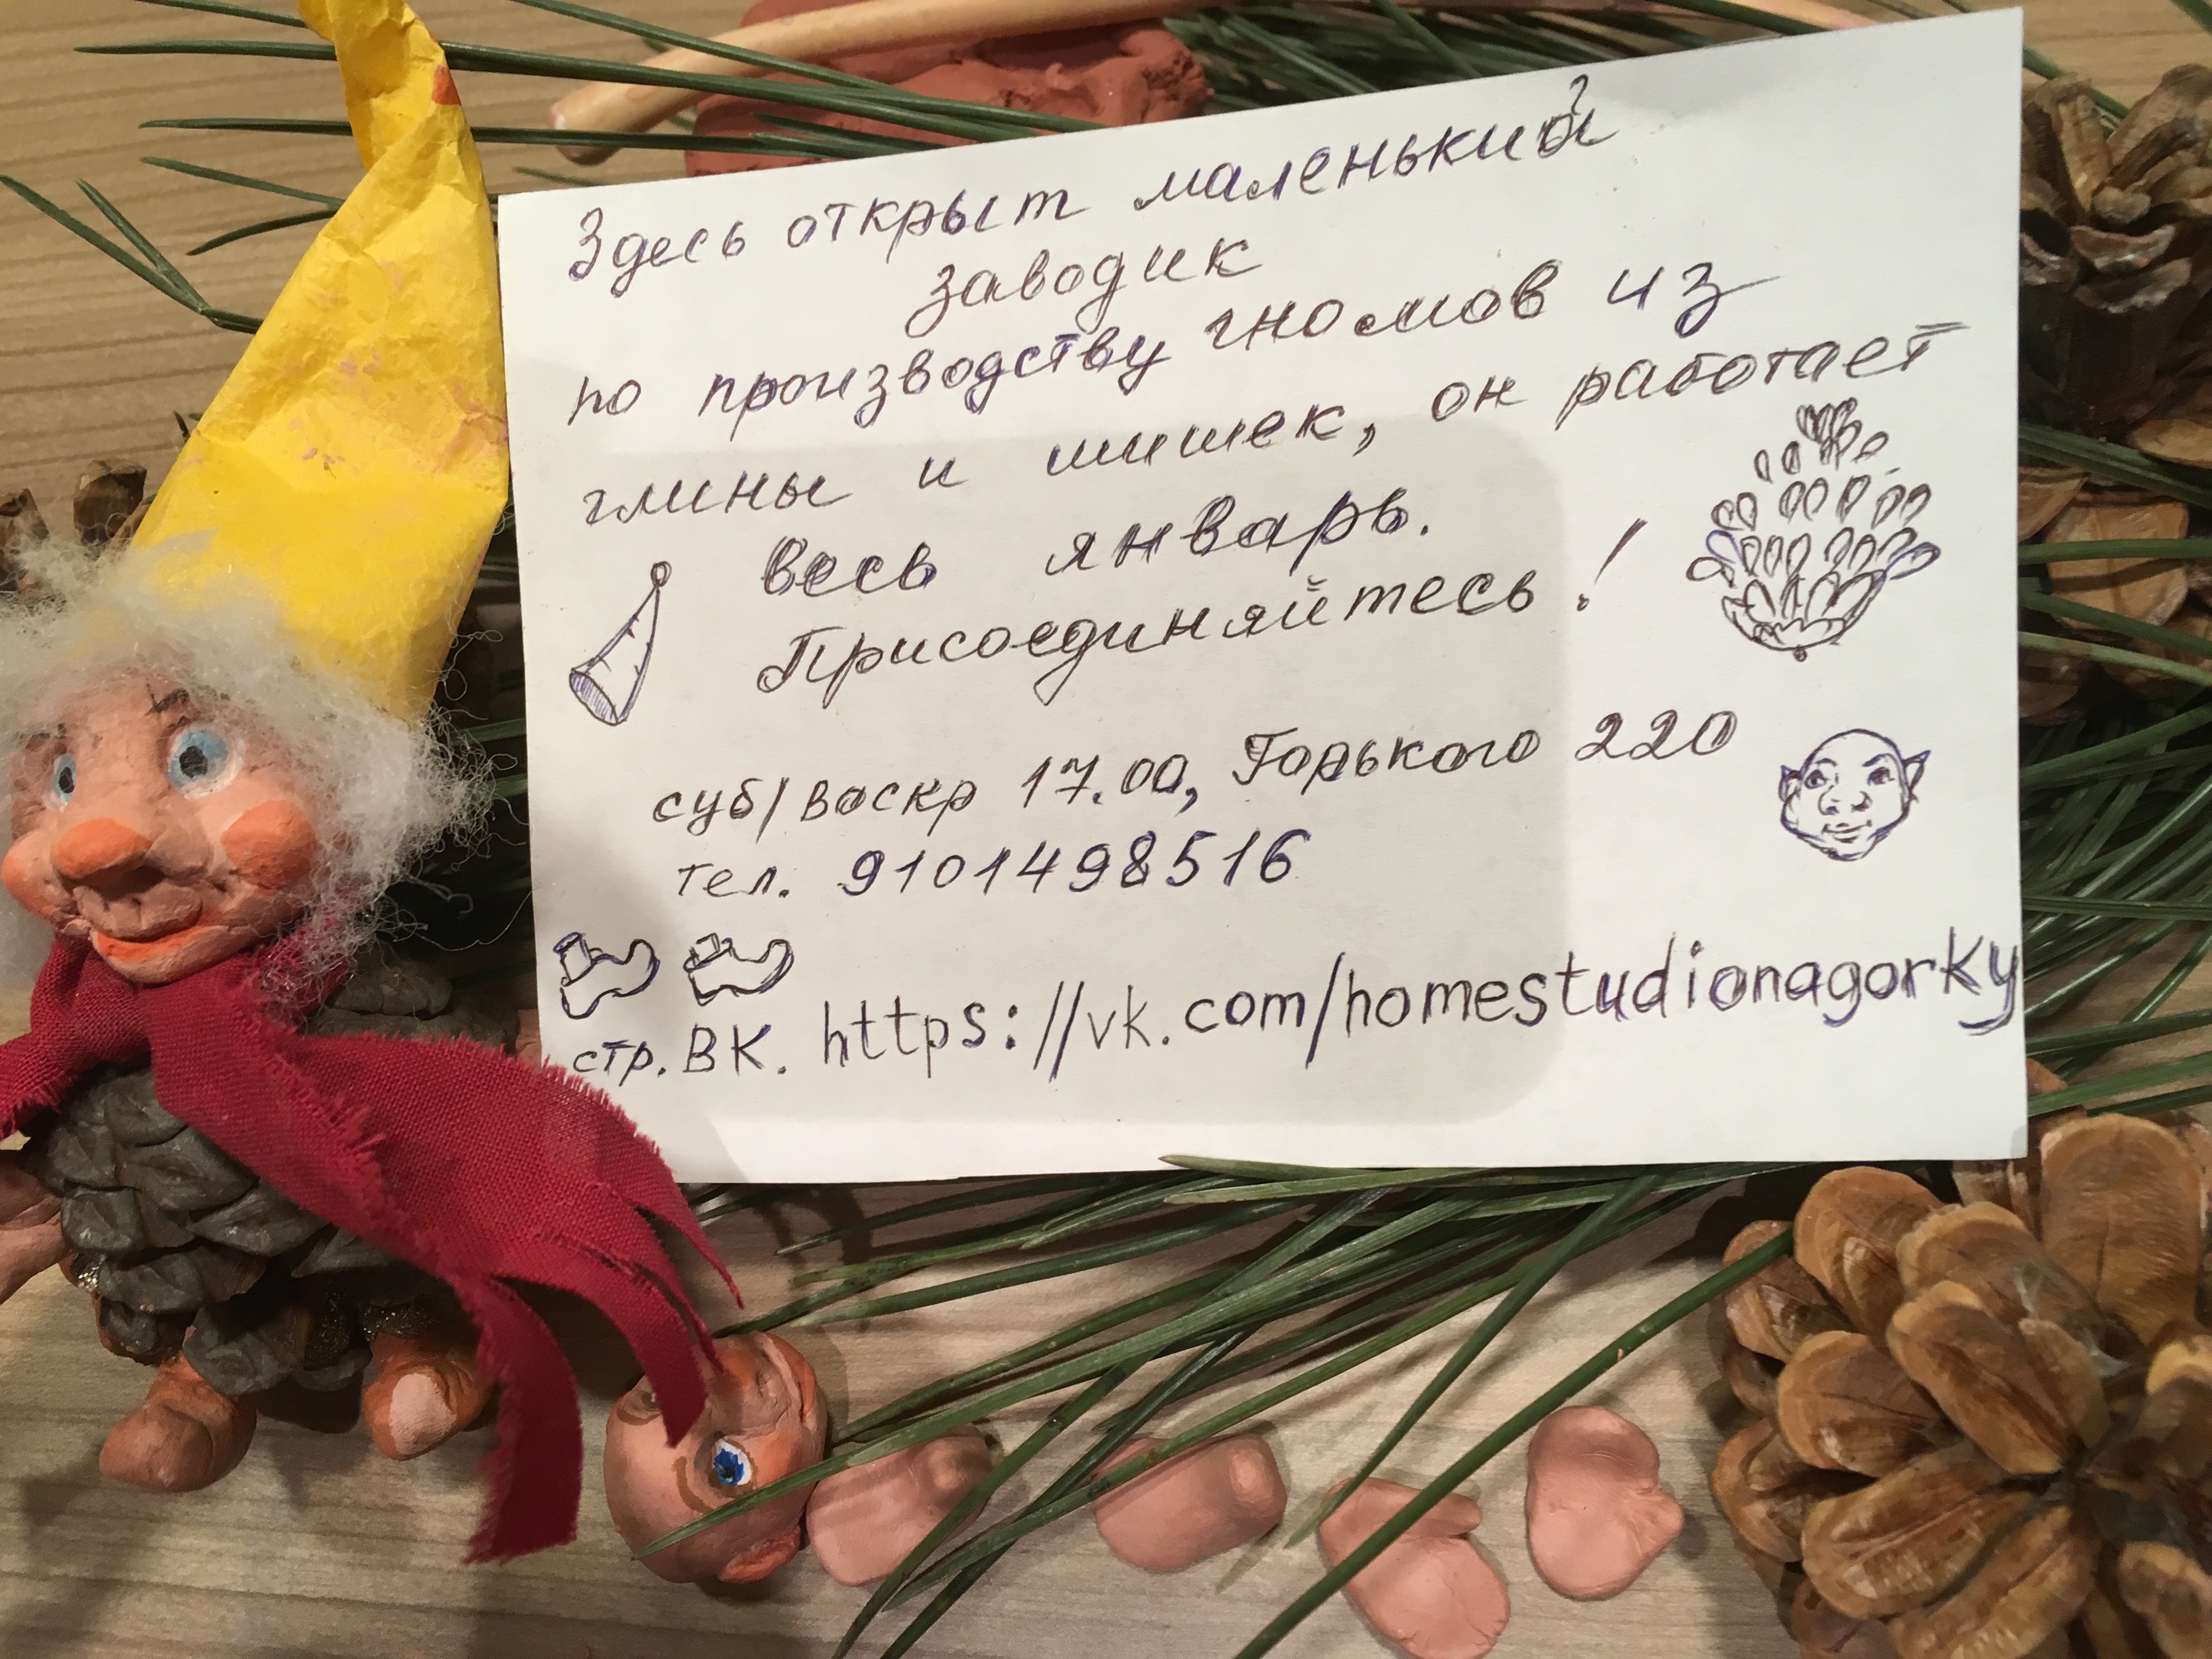 Здесь открыт маленький
заводик
по производству гномов из
глины и шишек, он работает
весь январь.
Присоединяйтесь!
суб/воскр 17.00, Горького 220
тел. 9101498516
стр. ВК. https://vk.com/homestudionagorky